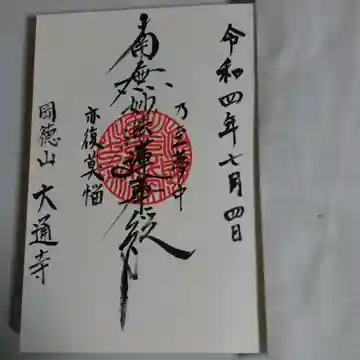 令和四年七月四日
乃至夢中
南無妙法蓮華経
亦復莫悩
岡徳山 大通寺